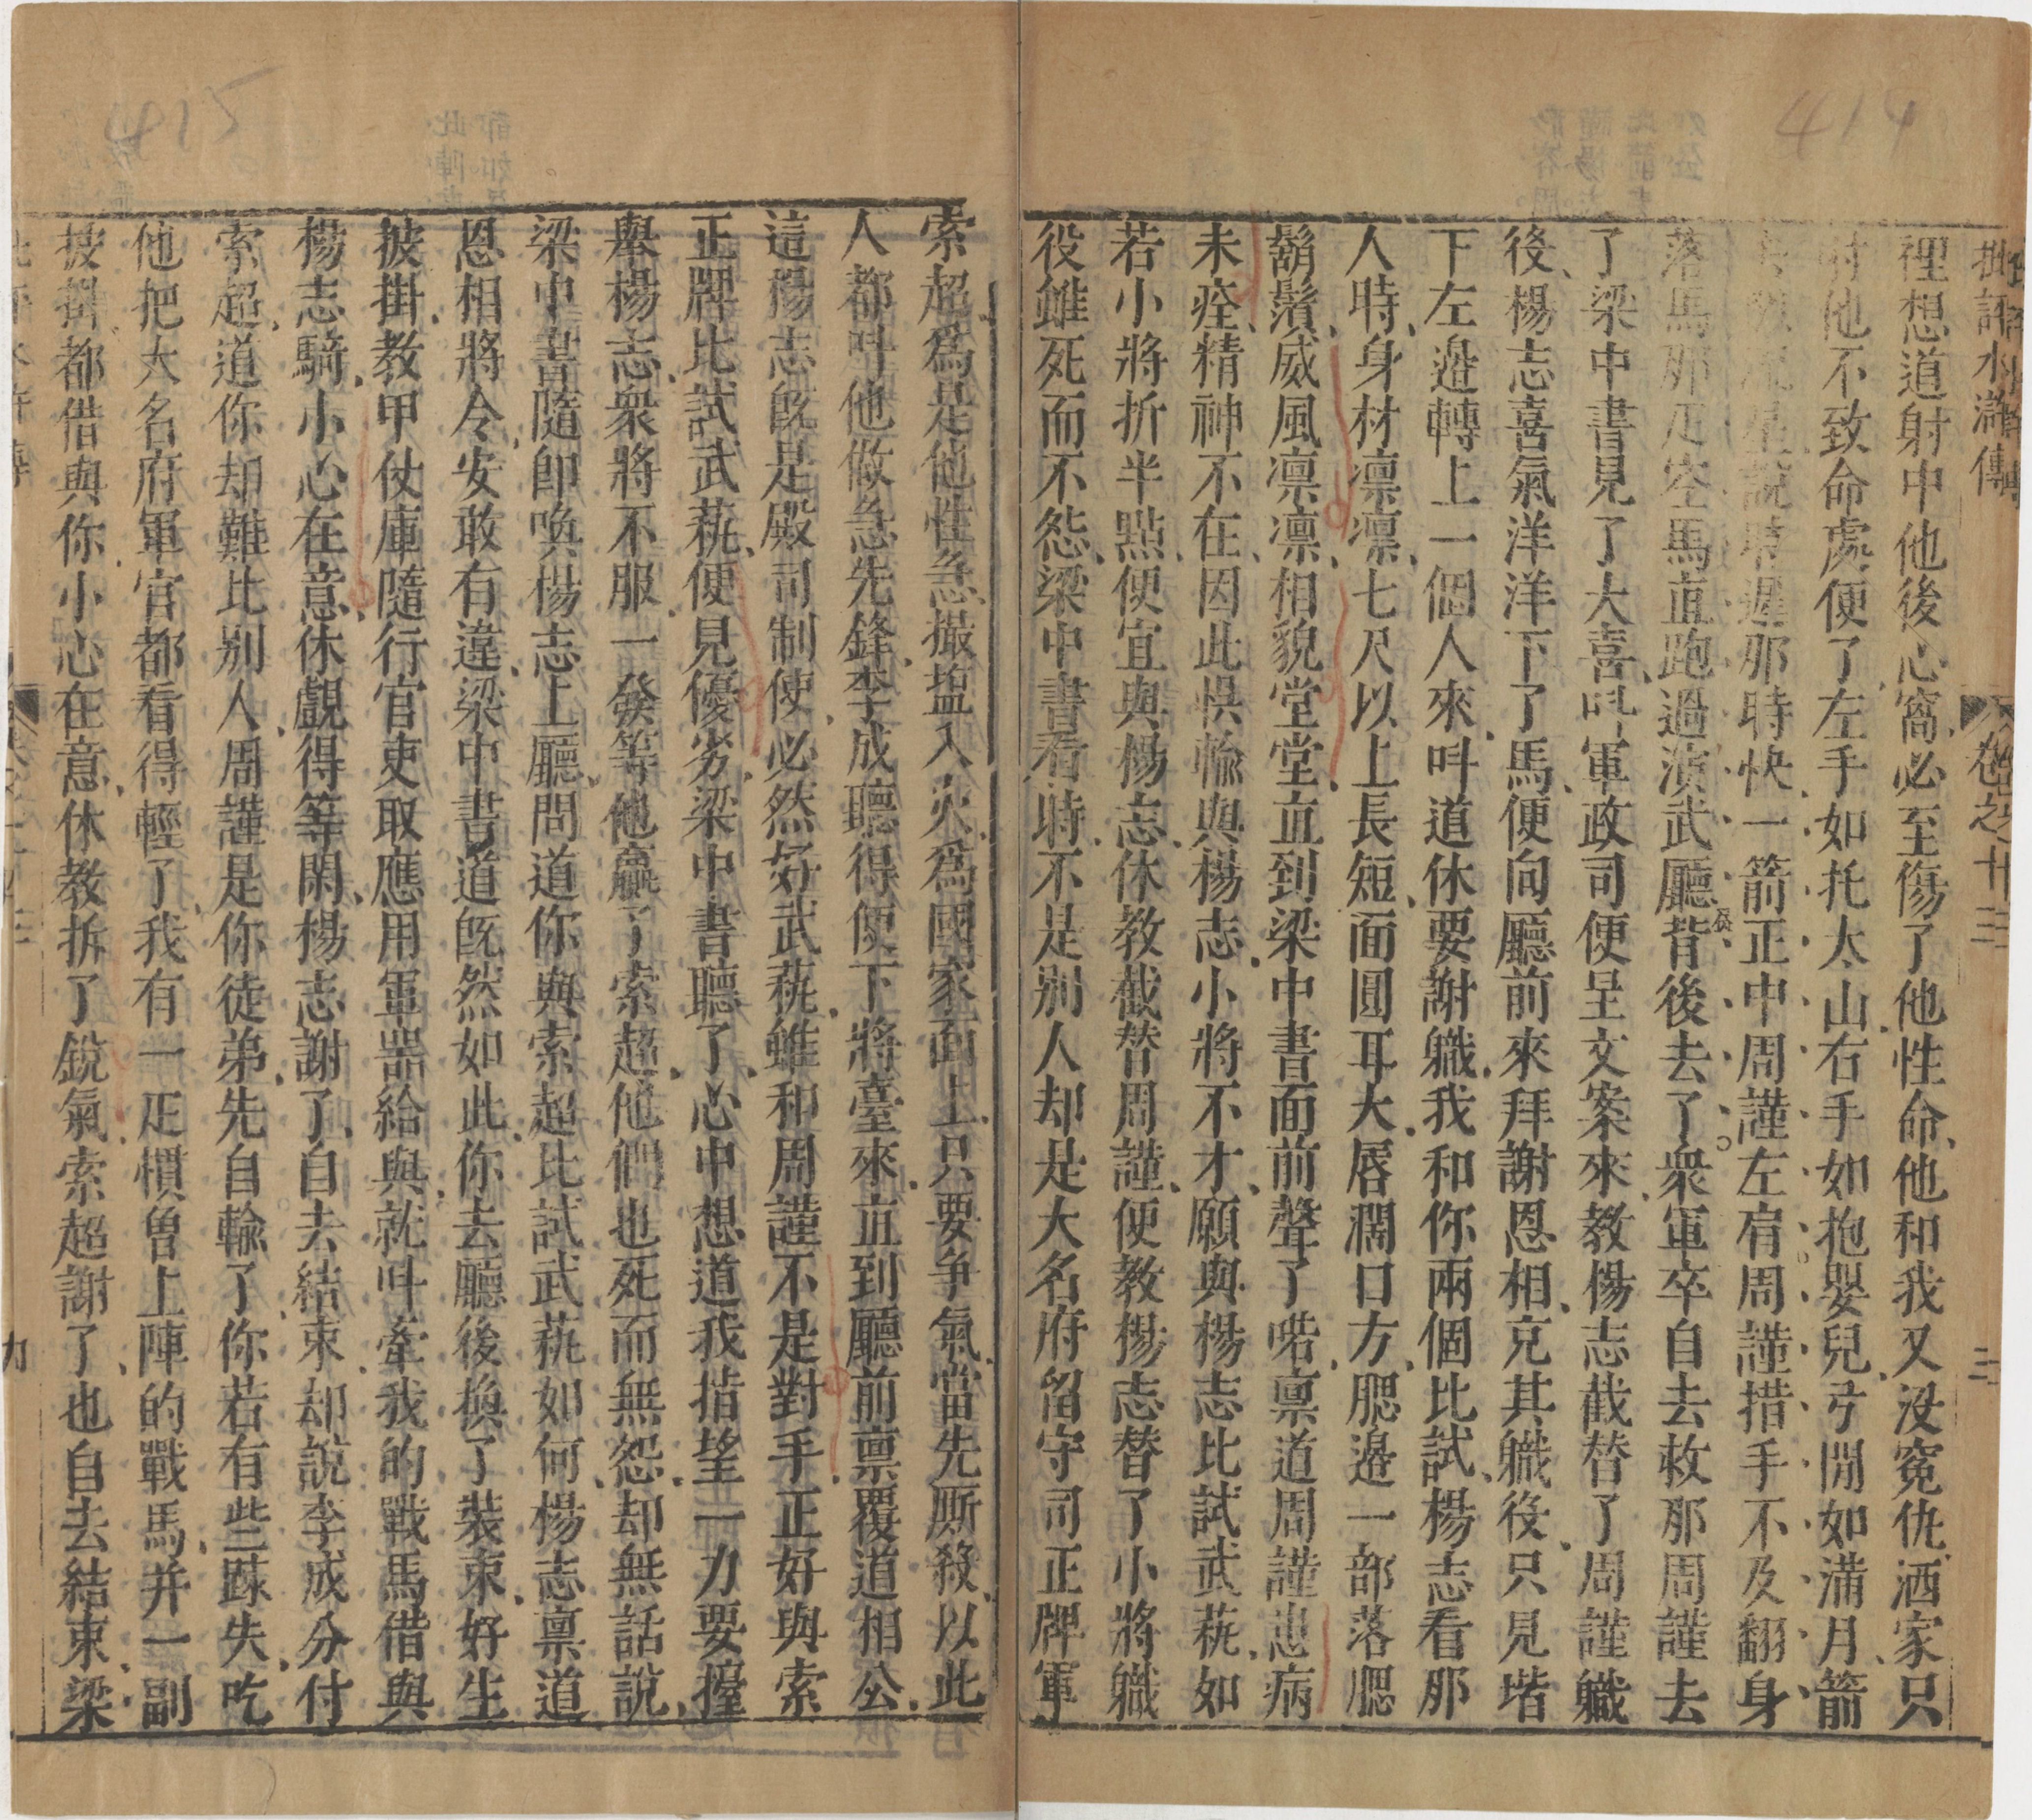 批評水滸傳
卷之十三
三
裡想道射中他後心窩必至傷了他性命他和我又沒寃仇洒家只
射他不致命處便了左手如托太山右手如抱嬰兒弓開如滿月箭
去似流星說時遲那時快一箭正中周謹左肩周謹措手不及翻身
落馬那疋空馬直跑過演武廳背後去了衆軍卒自去救那周謹去
了梁中書見了大喜呌軍政司便呈文案來教楊志截替了周謹職
後楊志喜氣洋洋下了馬便向廳前來拜謝恩相克其職役只見堦
下左邉轉上一個人來呌道休要謝職我和你兩個比試楊志看那
人時身材凛凛七尺以上長短面圓耳大唇濶口方腮邉一部落腮
鬍鬚威風凛凛相貌堂堂直到梁中書面前聲了喏禀道周謹患病
未痊精神不在因此悞輸與楊志小將不才願與楊志比試武藝如
若小將折半點便宜與楊志休教截替周謹便教楊志替了小將職
役雖死而不怨梁中書看時不是别人却是大名府留守司正牌軍
索超爲是他性急撮塩入火爲國家面上只要争氣當先厮殺以此
人都呌他做急先鋒李成聽得便下將臺來直到廳前禀覆道相公
這楊志旣是殿司制使必然好武藝雖和周謹不是對手正好與索
正牌比試武藝便見優劣梁中書聽了心中想道我指望一力要擡
舉楊志衆將不服一發等他贏了索超他們也死而無怨却無話說
梁中書隨即喚楊志上廳問道你與索超比試武藝如何楊志禀道
恩相將令安敢有違梁中書道旣然如此你去廳後換了裝束好生
披掛教甲仗庫隨行官吏取應用軍噐給與就呌牽我的戰馬借與
楊志騎小心在意休覷得等閑楊志謝了自去結束却說李成分付
索超道你却難比别人周謹是你徒弟先自輸了你若有些踈失吃
他把大名府軍官都看得輕了我有一疋慣曾上陣的戰馬并一副
披掛都借與你小心在意休教拆了銳氣索超謝了也自去結束梁